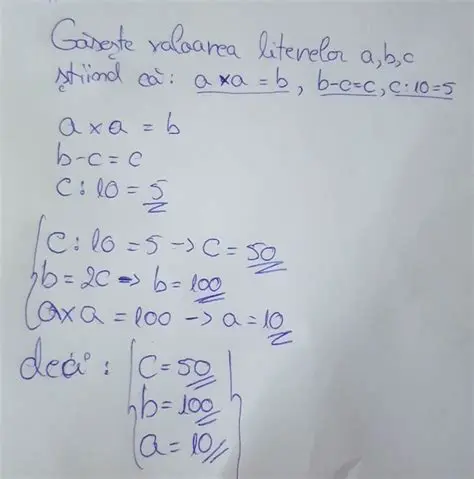 Găsește valoarea literelor a,b,c
știind că: a×a=b, b-c=c, c:10=5
a×a=b
b-c=c
c:10=5
c:10=5→c=50
b=2c→b=100
a×a=100→a=10
deci: c=50
b=100
a=10